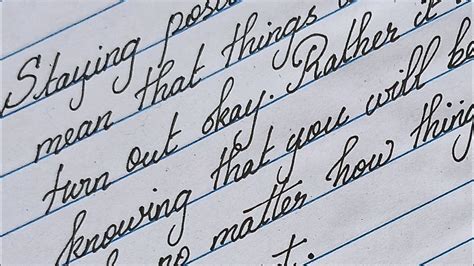 Staying posi
mean that things
turn out okay. Rather it
knowing that you will be
no matter how thing
t.